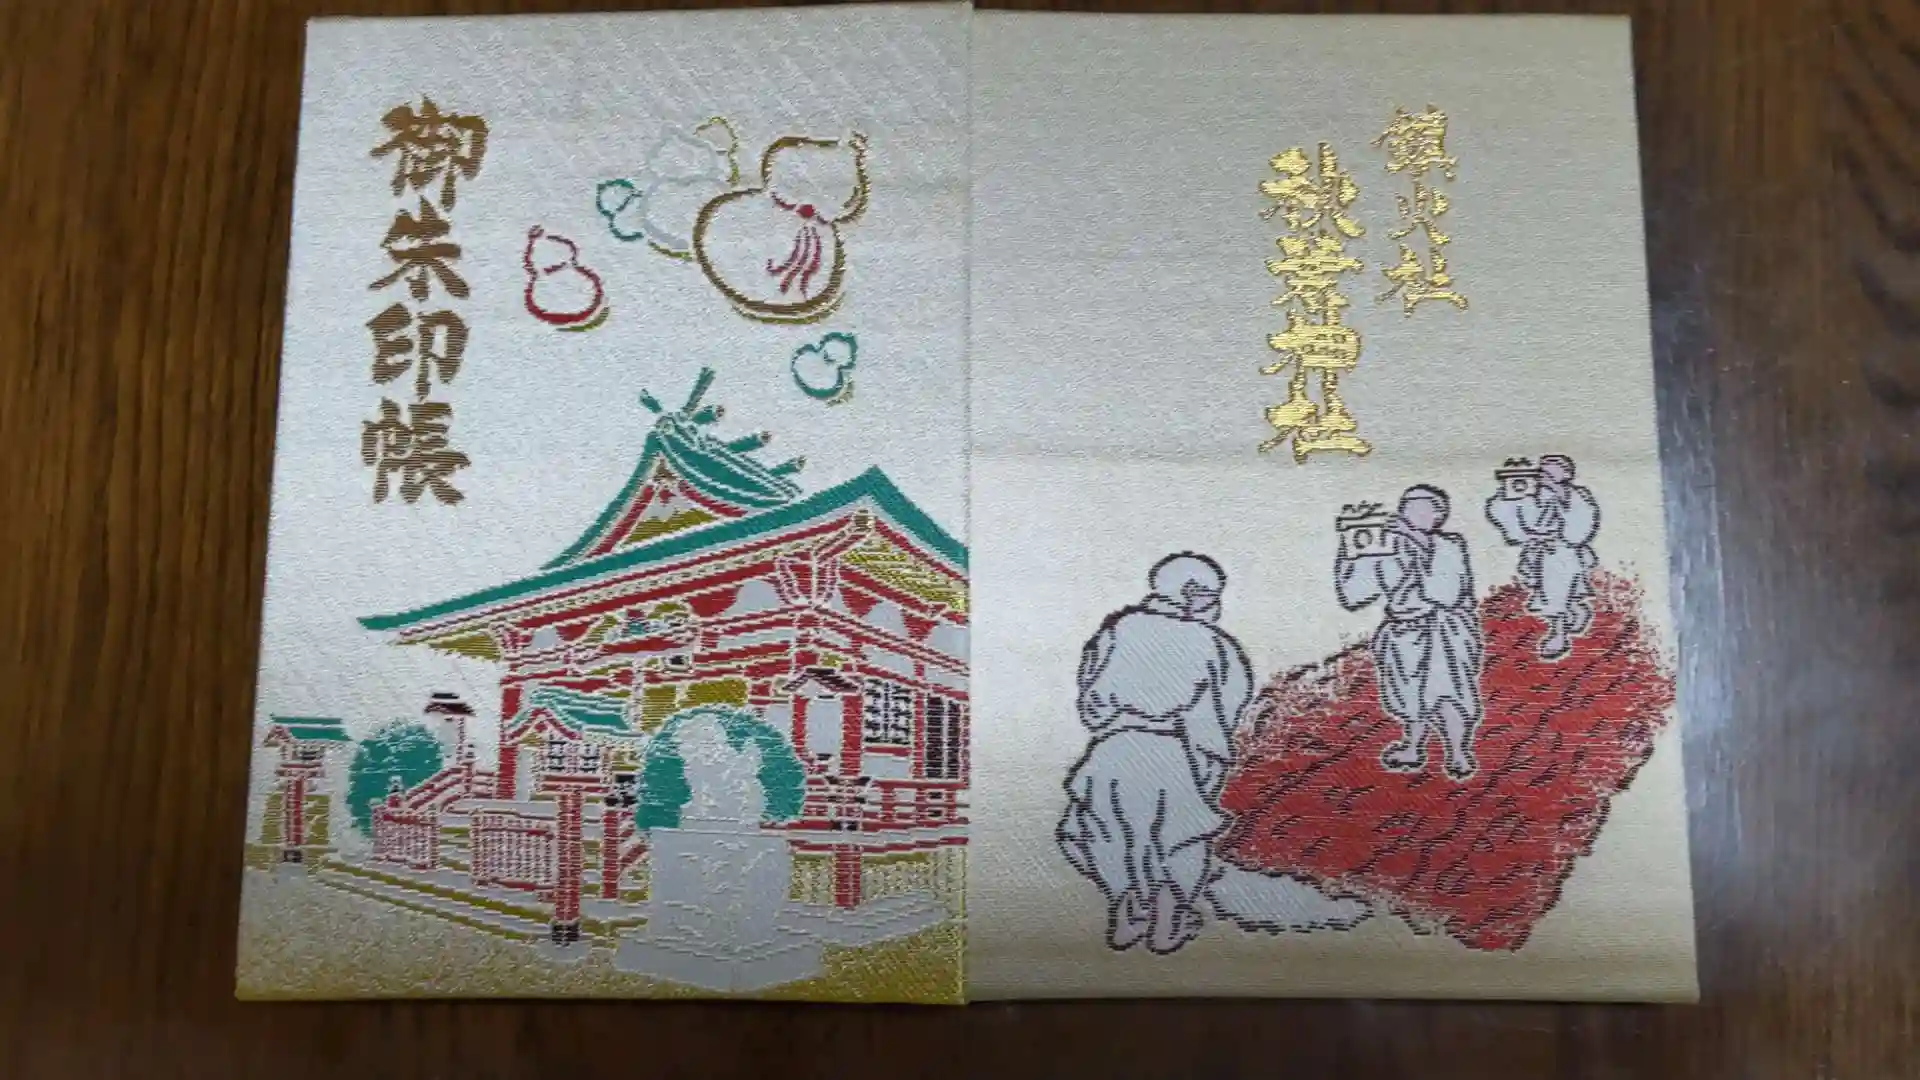 御朱印帳
鎮火社
秋葉神社